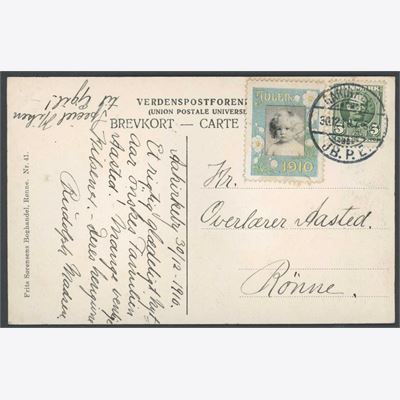 VERDENSPOSTFOREN
(UNION POSTALE UNIVERSE
BREVKORT – CARTE
Frits Sørensens Boghandel, Rønne. Nr. 41.
til Egil!
Aakirkeby 30/12 1910.
Et rigtig glædeligt Nyt-
aar ønskes Familien
Aasted! Mange venlige
Hilsener, – deres hengivne
Rudolph
JULEN
1910
DANMARK
5 5
30.12
JB.P.E.
Hr.
Overlærer Aasted.
Rönne.